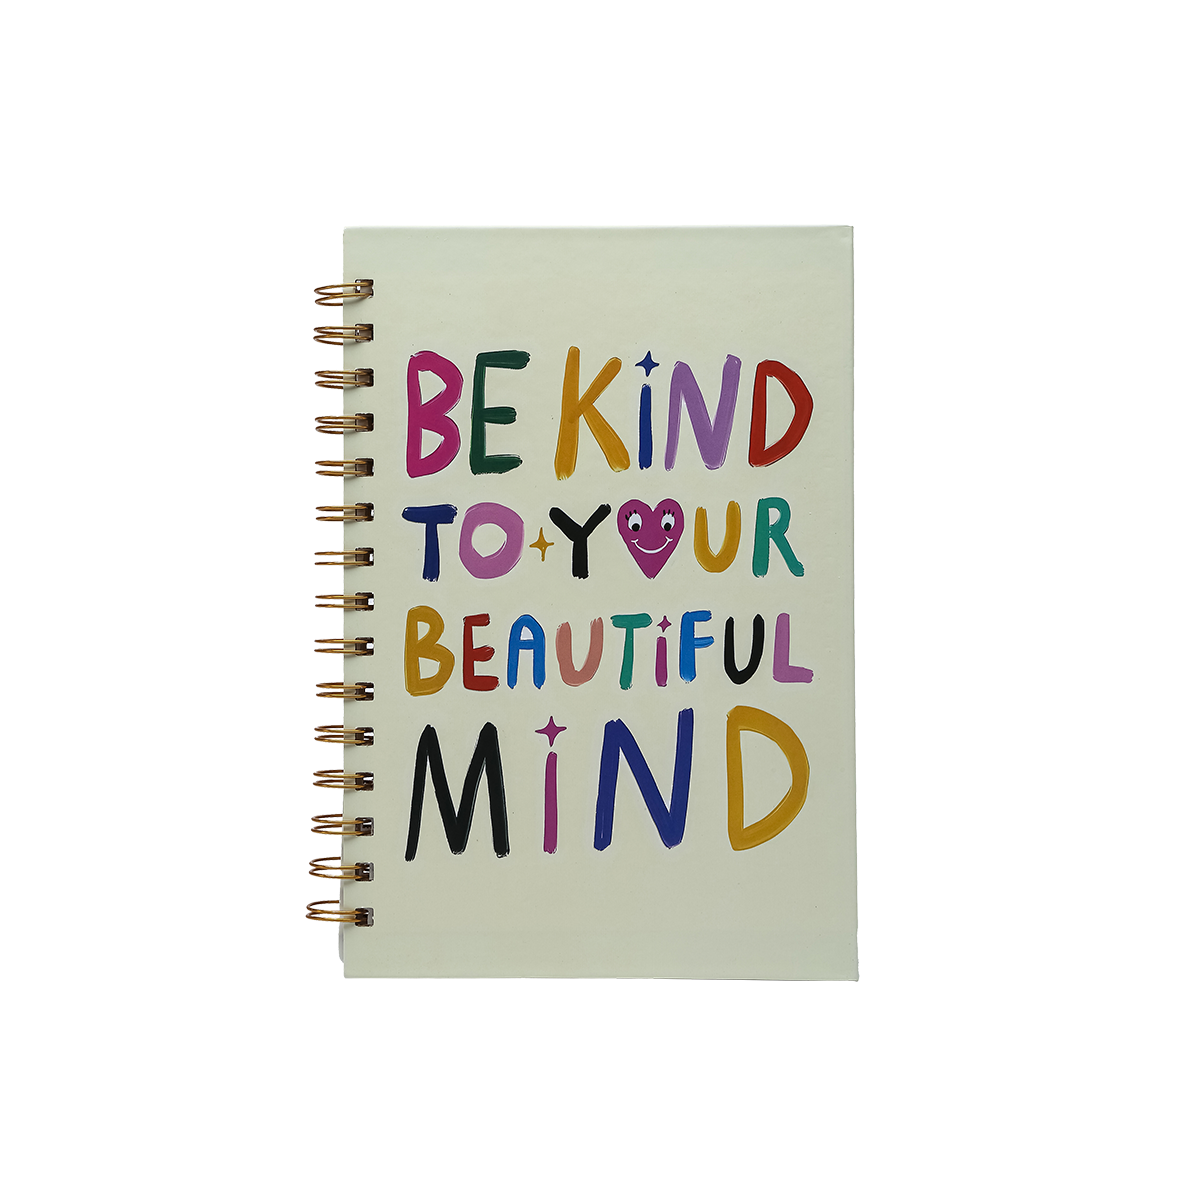 BE KiND
TO YOUR
BEAUTiFUL
MiND